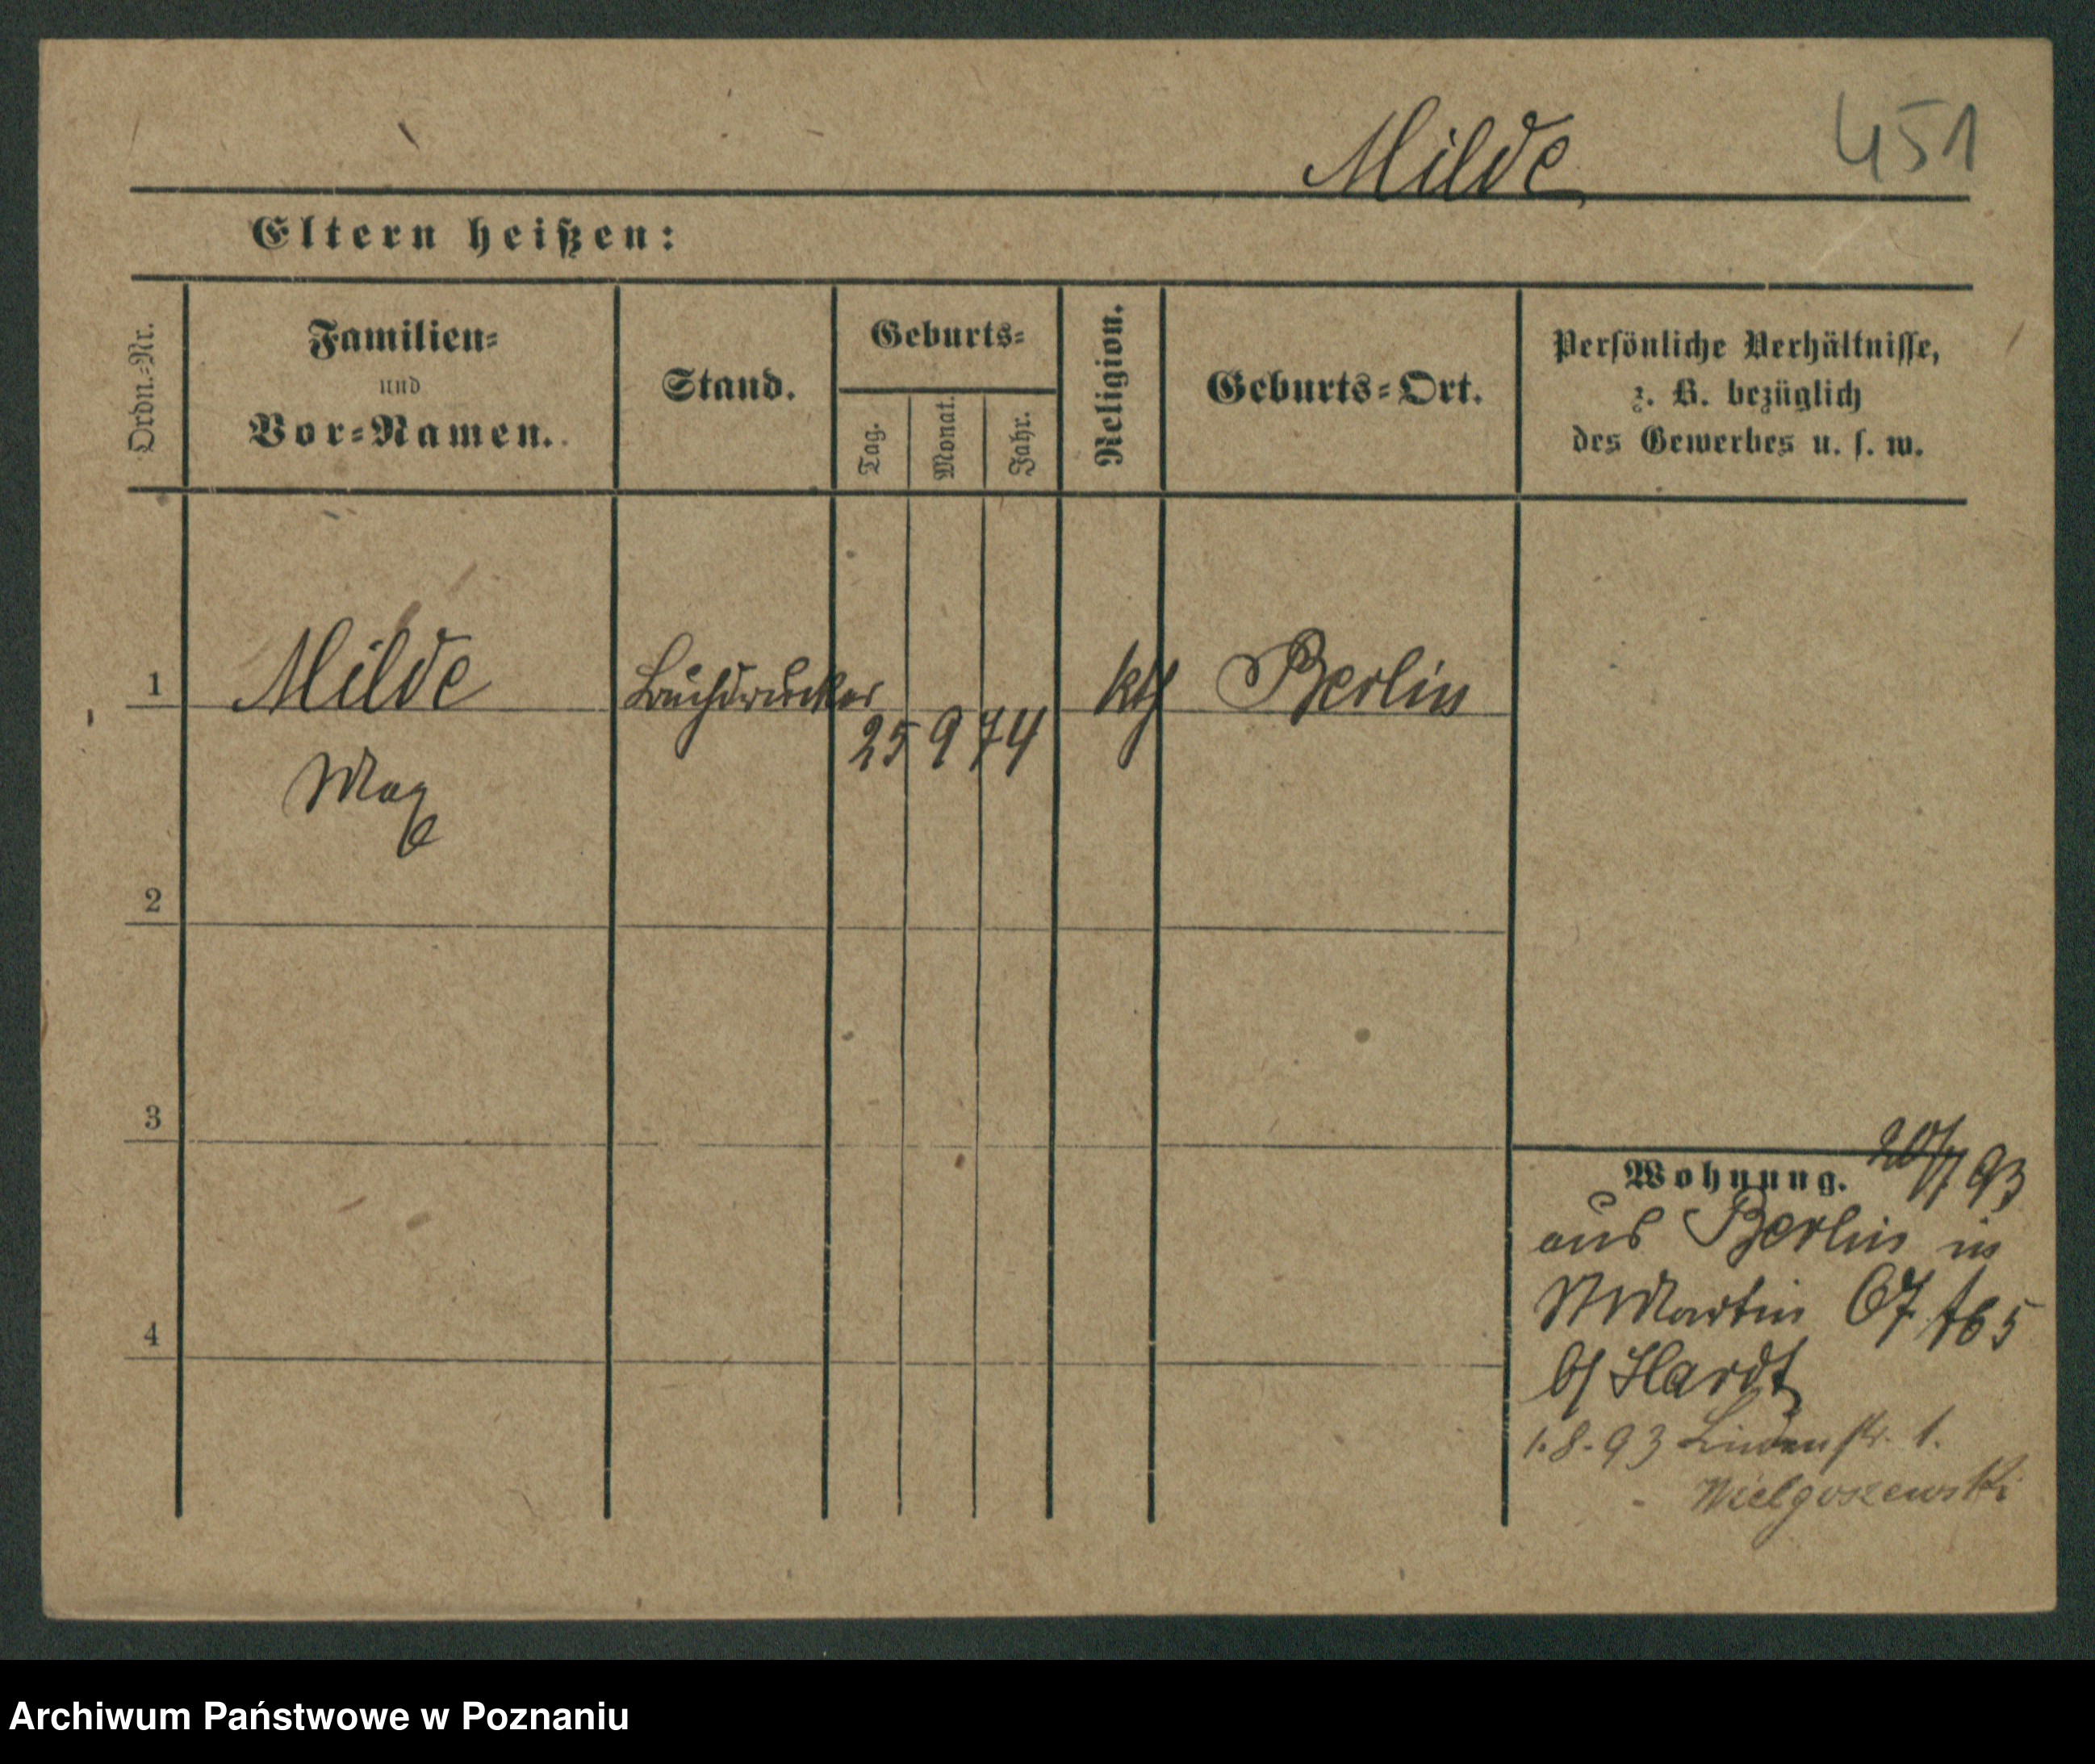 Milde 451
Eltern heißen:
Ordn.-Nr.
Familien-
und
Vor-Namen.
Stand.
Geburts-
Tag.
Monat.
Jahr.
Religion.
Geburts-Ort.
Persönliche Verhältnisse,
z. B. bezüglich
des Gewerbes u. s. w.
1 Milde Buchdrucker 25 9 74 kth Berlin
Max
2
3
4
Wohnung. 20/7 93
aus Berlin in
Martin 67
b/ Hardt
1.8.93 Lindenstr. 1.
Wielgoszewski
Archiwum Państwowe w Poznaniu